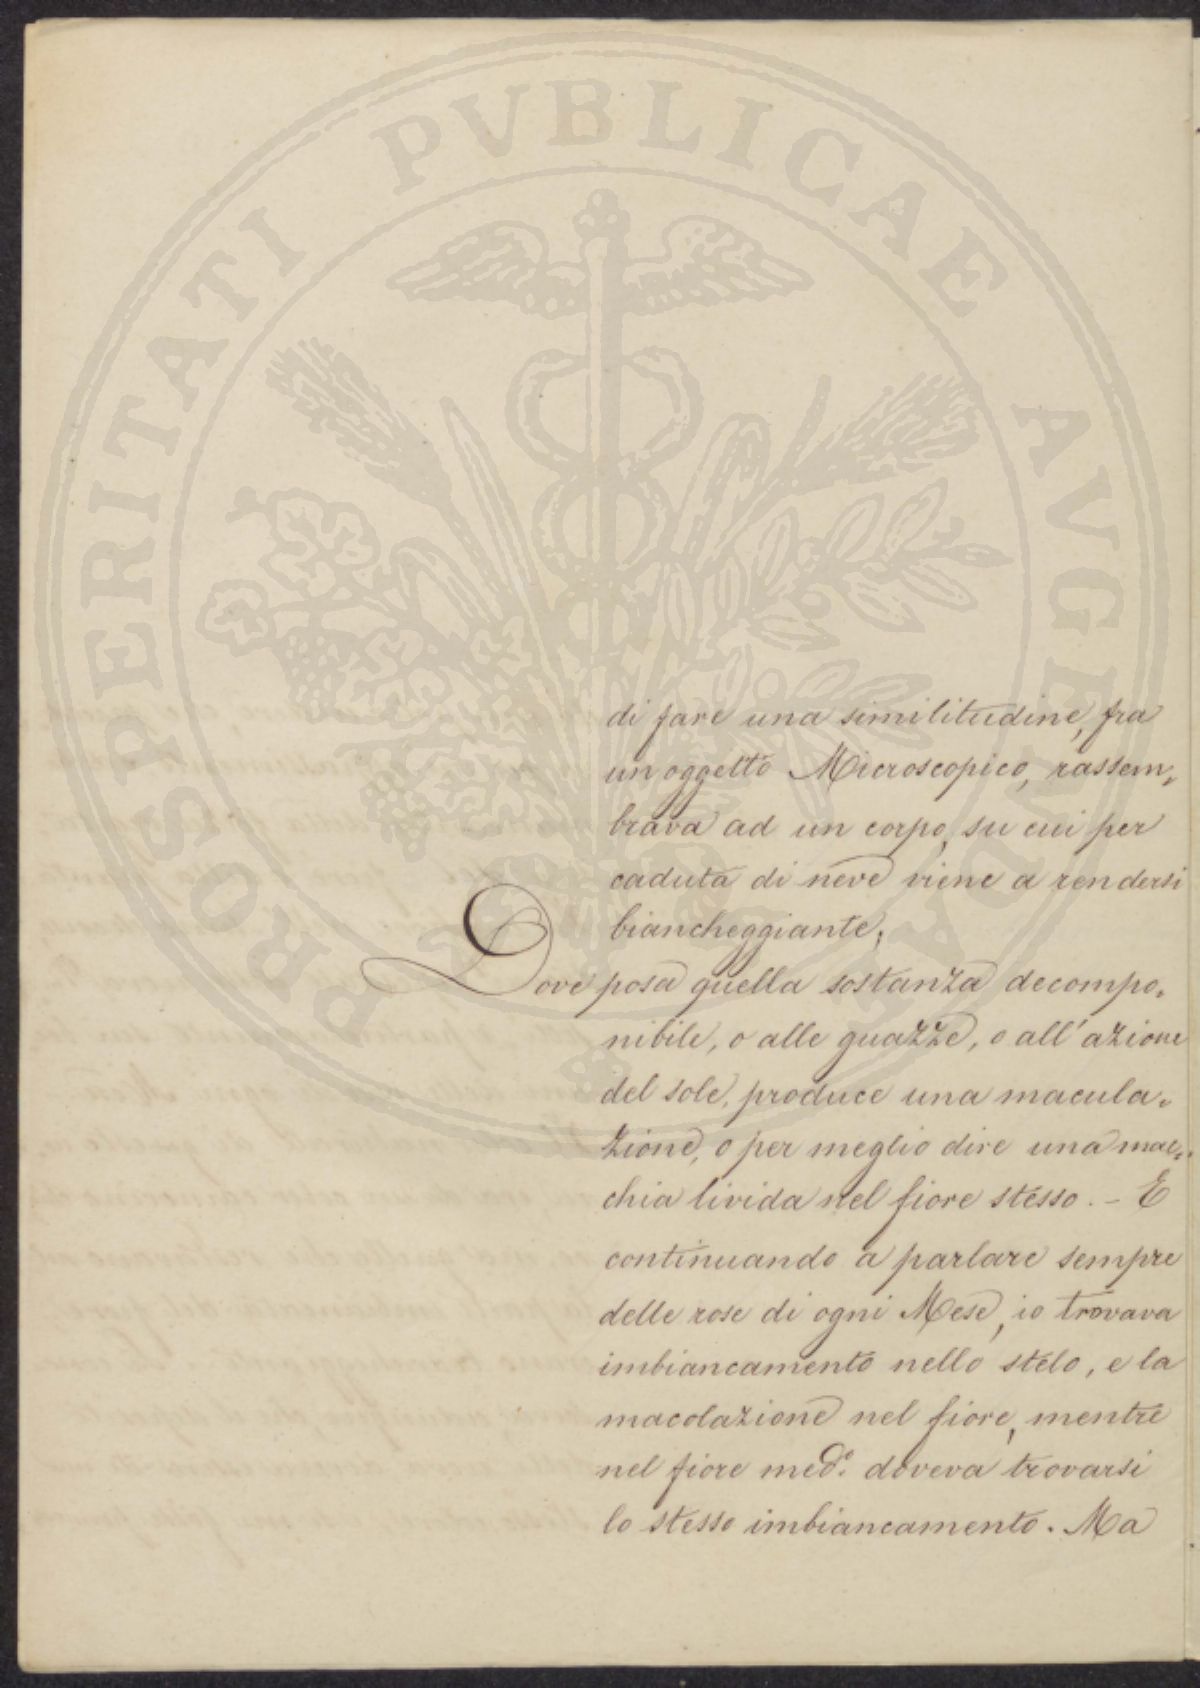 PROSPERITATI PVBLICAE AVGENDAE
di fare una similitudine, fra
un oggetto Microscopico, rassem„
brava ad un corpo, su cui per
caduta di neve viene a rendersi
biancheggiante;
Dove posa quella sostanza decompo„
nibile, o alle guazze, o all'azione
del sole, produce una macula„
zione, o per meglio dire una mac„
chia livida nel fiore stesso. – E
continuando a parlare sempre
delle rose di ogni Mese, io trovava
imbiancamento nello stelo, e la
macolazione nel fiore, mentre
nel fiore med.º doveva trovarsi
lo stesso imbiancamento. Ma